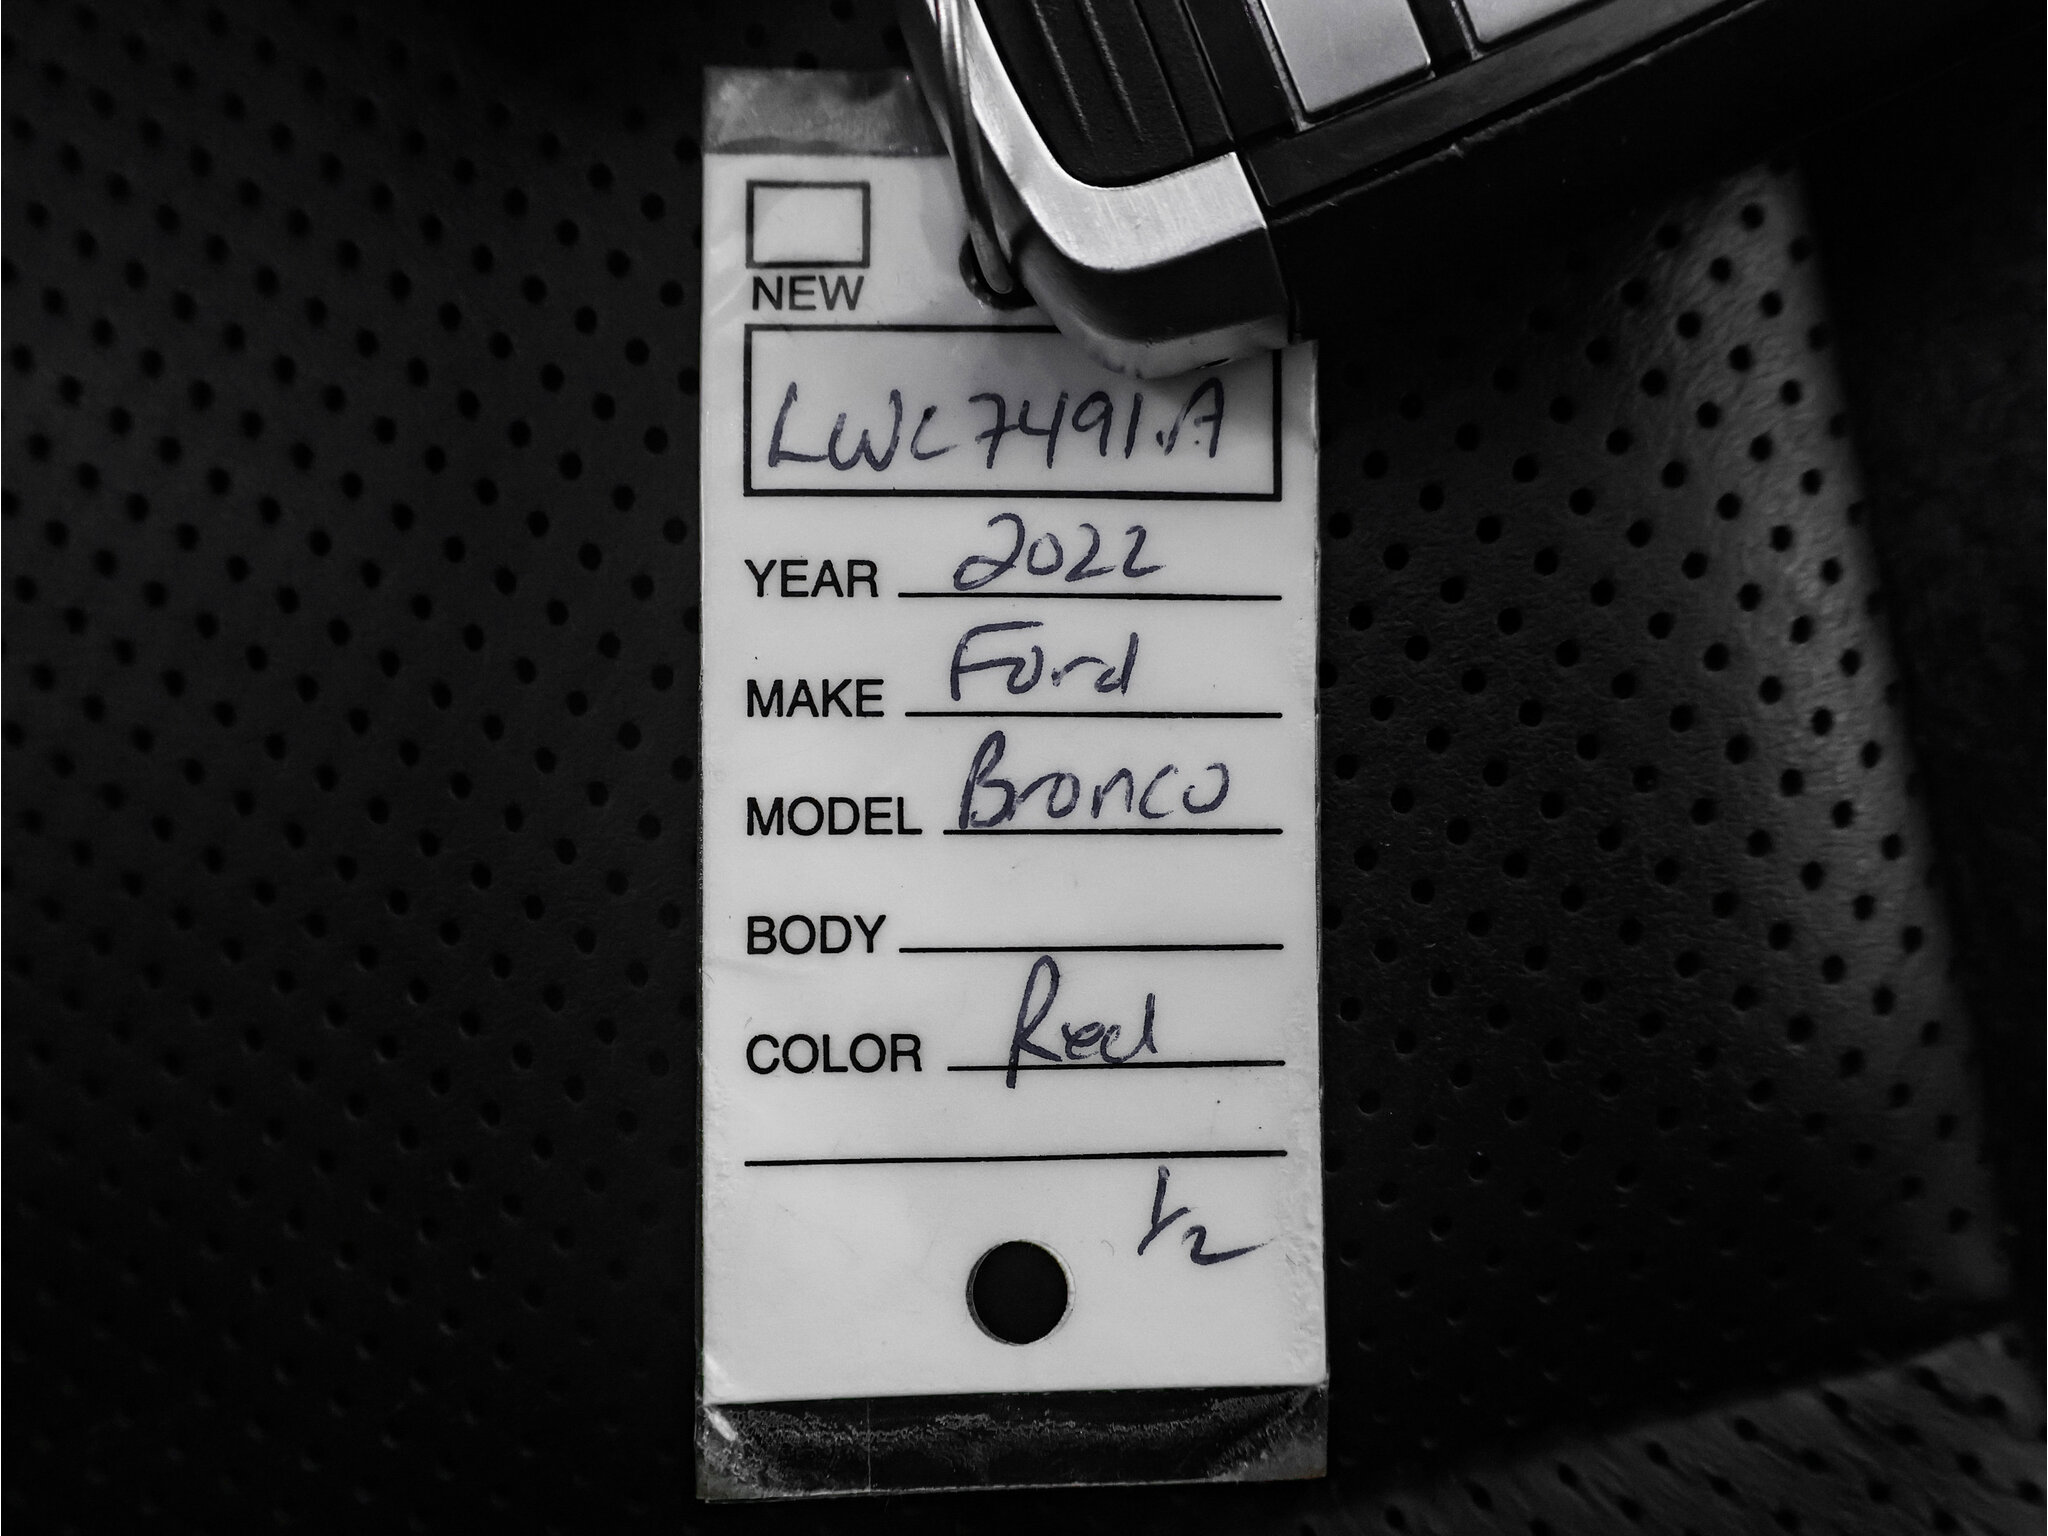 NEW
LWC7491.A
YEAR 2022
MAKE Ford
MODEL Bronco
BODY
COLOR Red
1/2